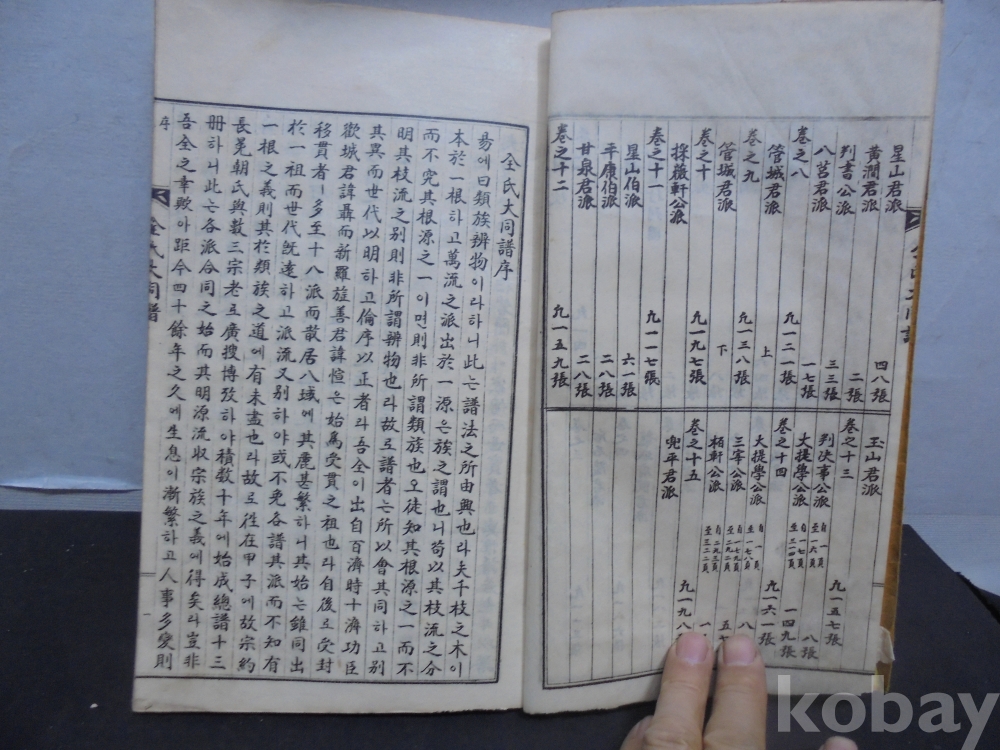 星山君派 四八張
黃澗君派 二張
判書公派 三三張
八莒君派 一七張
卷之八 九一二一張
管城君派 上
卷之九 九一三八張
管城君派 下
卷之十 九一九七張
採薇軒公派
卷之十一 九一一七張
星山伯派 六一張
平康伯派 二八張
甘泉君派 二八張
卷之十二 九一五九張
玉山君派
卷之十三 九一五七張
判決事公派 自一頁 至一六頁 八張
大提學公派 自一七頁 至三一四頁 一四九張
卷之十四 九一六一張
大提學公派 自一頁 至一七八頁 八
三宰公派 自一七九頁 至二九二頁 五
栢軒公派 自二九三頁 至三二二頁 一
卷之十五 九一九八
兜平君派
全氏大同譜序
易에曰類族辨物이라하니此는譜法之所由興也라夫千枝之木이
本於一根하고萬流之派出於一源은族之謂也니苟以其枝流之分
而不究其根源之一이면則非所謂類族也오徒知其根源之一而不
明其枝流之別則非所謂辨物也라故로譜者는所以會其同하고別
其異而世代以明하고倫序以正者라吾全이出自百濟時十濟功臣
歡城君諱聶而新羅旌善君諱愃은始爲受貫之祖也라自後로受封
移貫者ㅣ多至十八派而散居八域에其麗甚繁하니其始는雖同出
於一祖而世代旣遠하고派流又別하야或不免各譜其派而不知有
一根之義則其於類族之道에有未盡也라故로往在甲子에故宗約
長晃朝氏與數三宗老로廣搜博攷하야積數十年에始成總譜十三
冊하니此는各派合同之始而其明源流收宗族之義에得矣라豈非
吾全之幸歟아距今四十餘年之久에生息이漸繁하고人事多變則
序
全氏大同譜
一
kobay